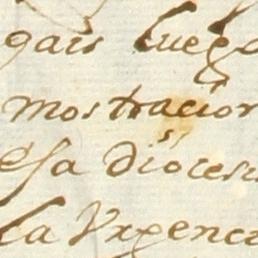 gais luego
mostracion
esa diocesi
la Urgenci